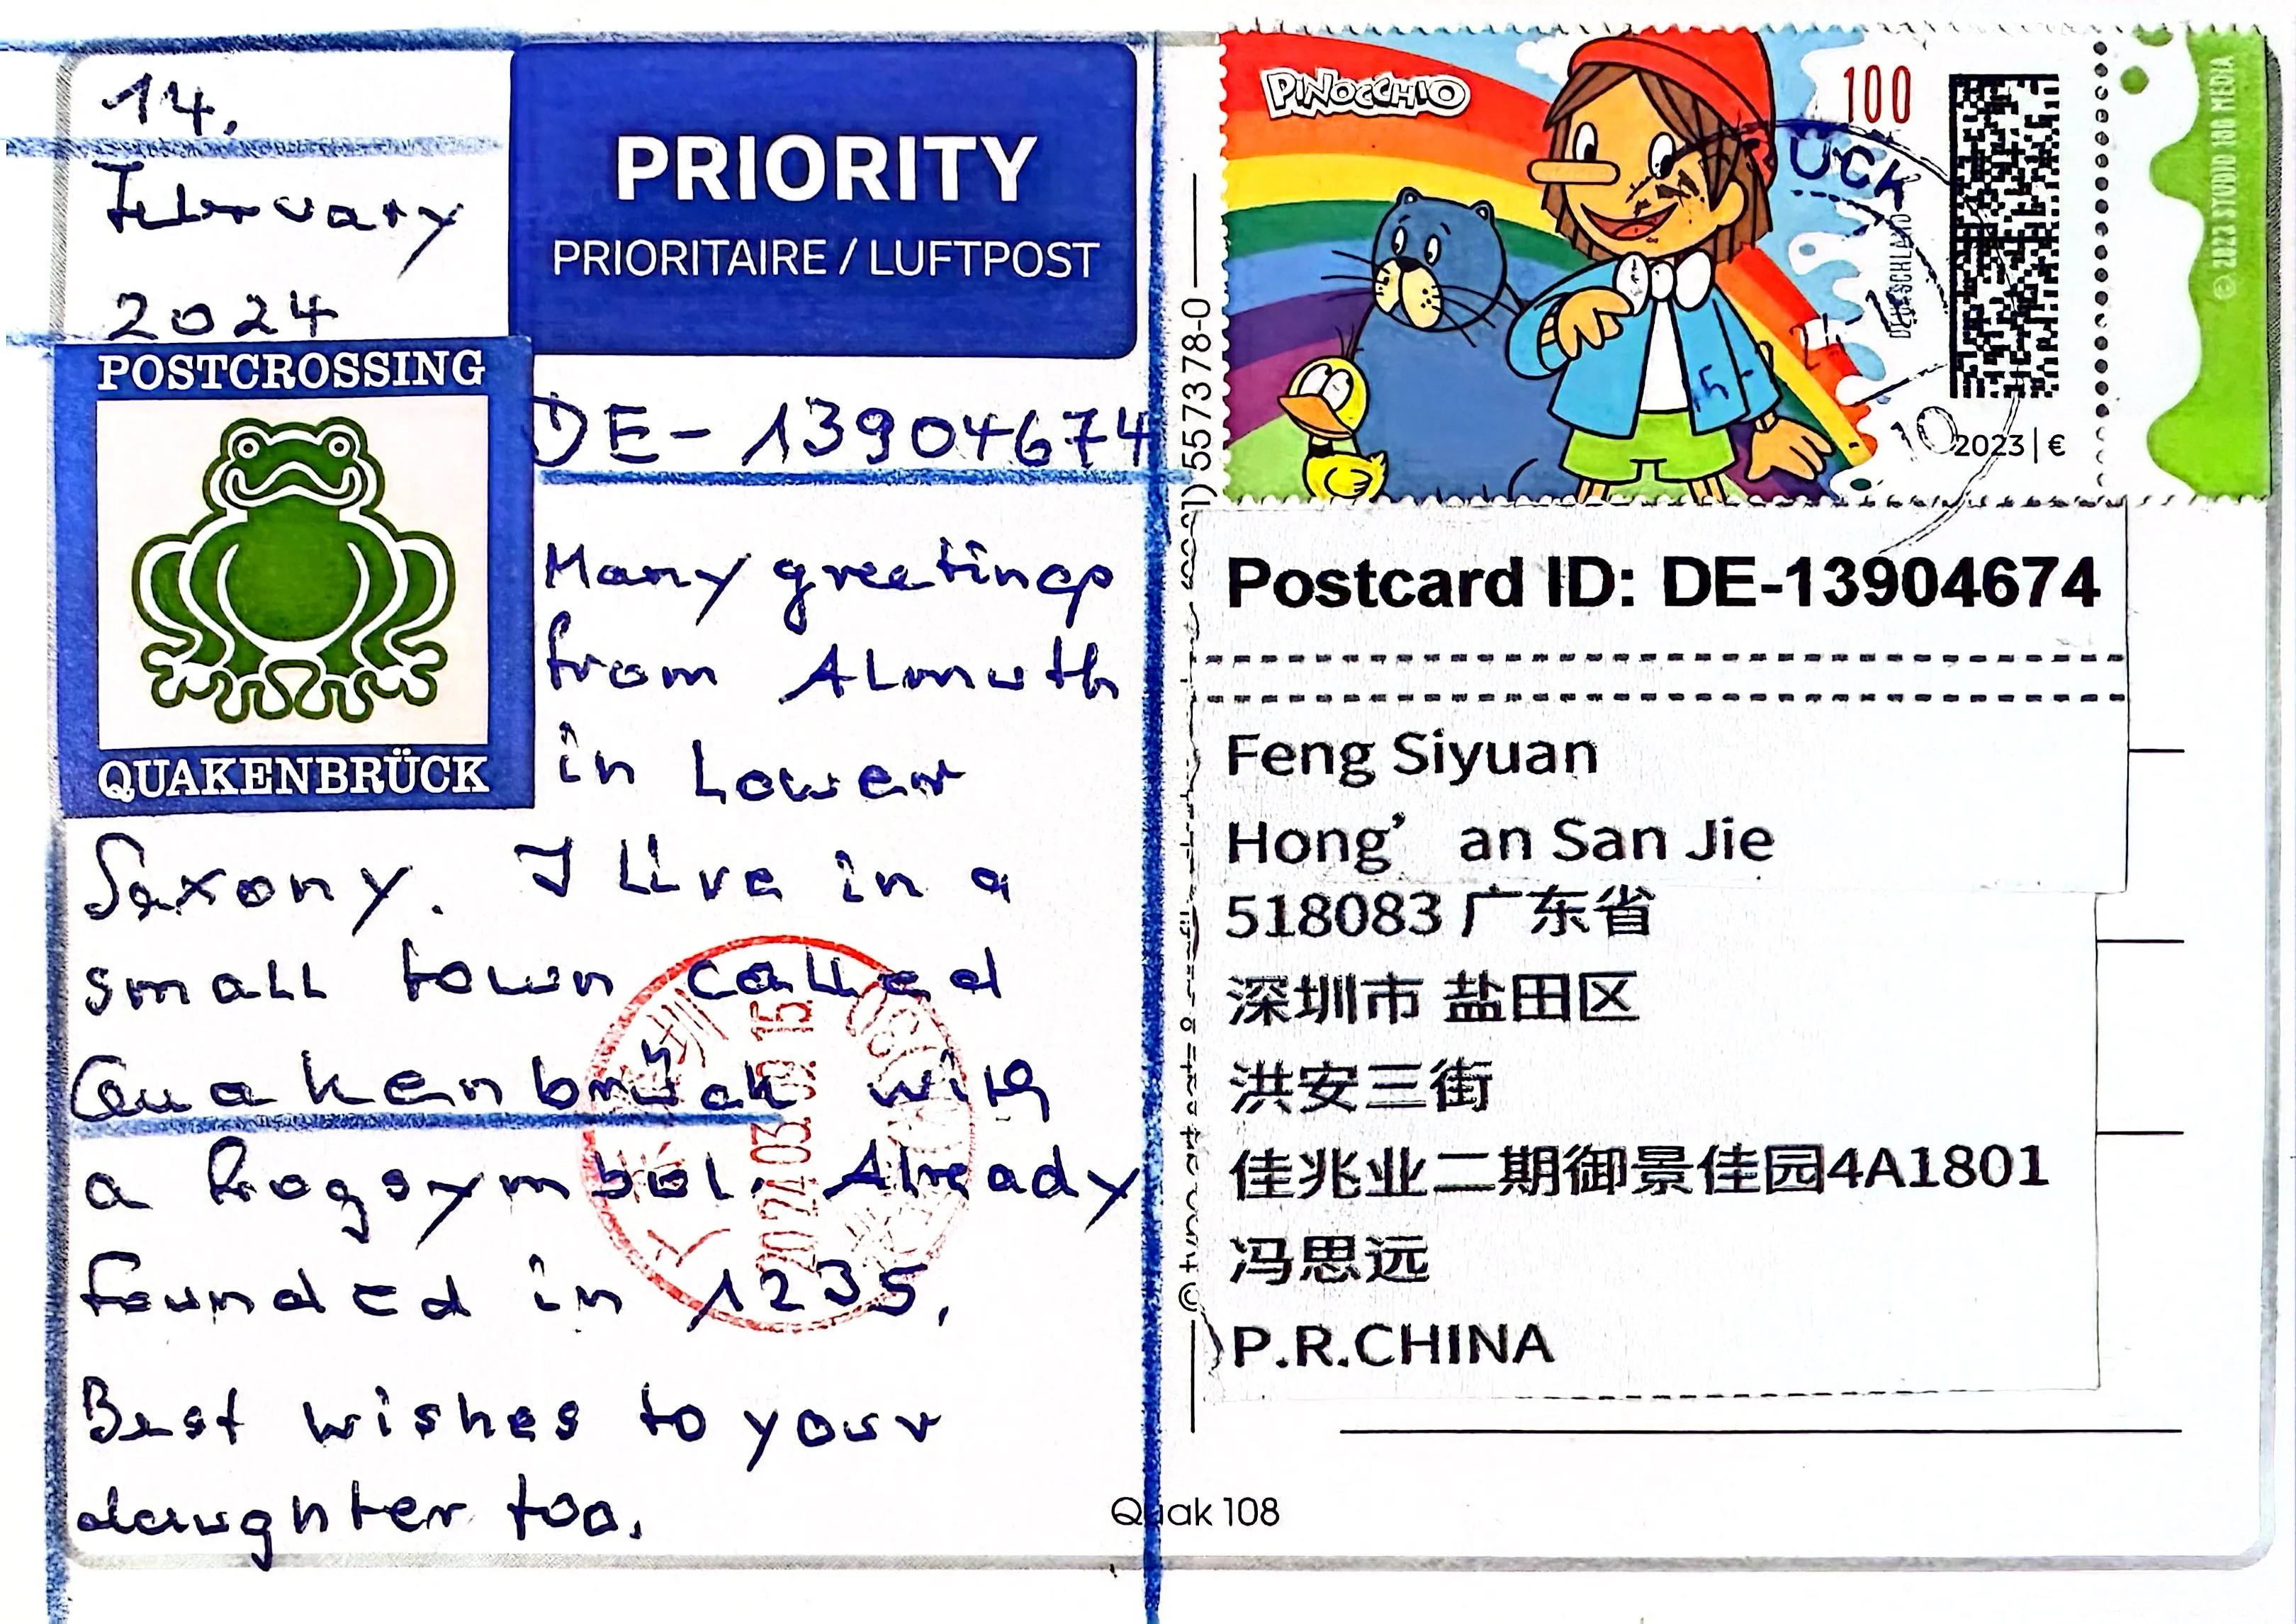 14.
February
2024
PRIORITY
PRIORITAIRE / LUFTPOST
POSTCROSSING
QUAKENBRÜCK
DE-13904674
Many greetings
from Almuth
in Lower
Saxony. I live in a
small town called
Quakenbrück with
a frogsymbol. Already
founded in 1235.
Best wishes to your
daughter too.
2024.03.02 15
Quak 108
5573 78-0
PINOCCHIO
100
DEUTSCHLAND
2023 | €
© 2023 STUDIO 100 MEDIA
ÜCK
Postcard ID: DE-13904674
Feng Siyuan
Hong’ an San Jie
518083 广东省
深圳市 盐田区
洪安三街
佳兆业二期御景佳园4A1801
冯思远
P.R.CHINA